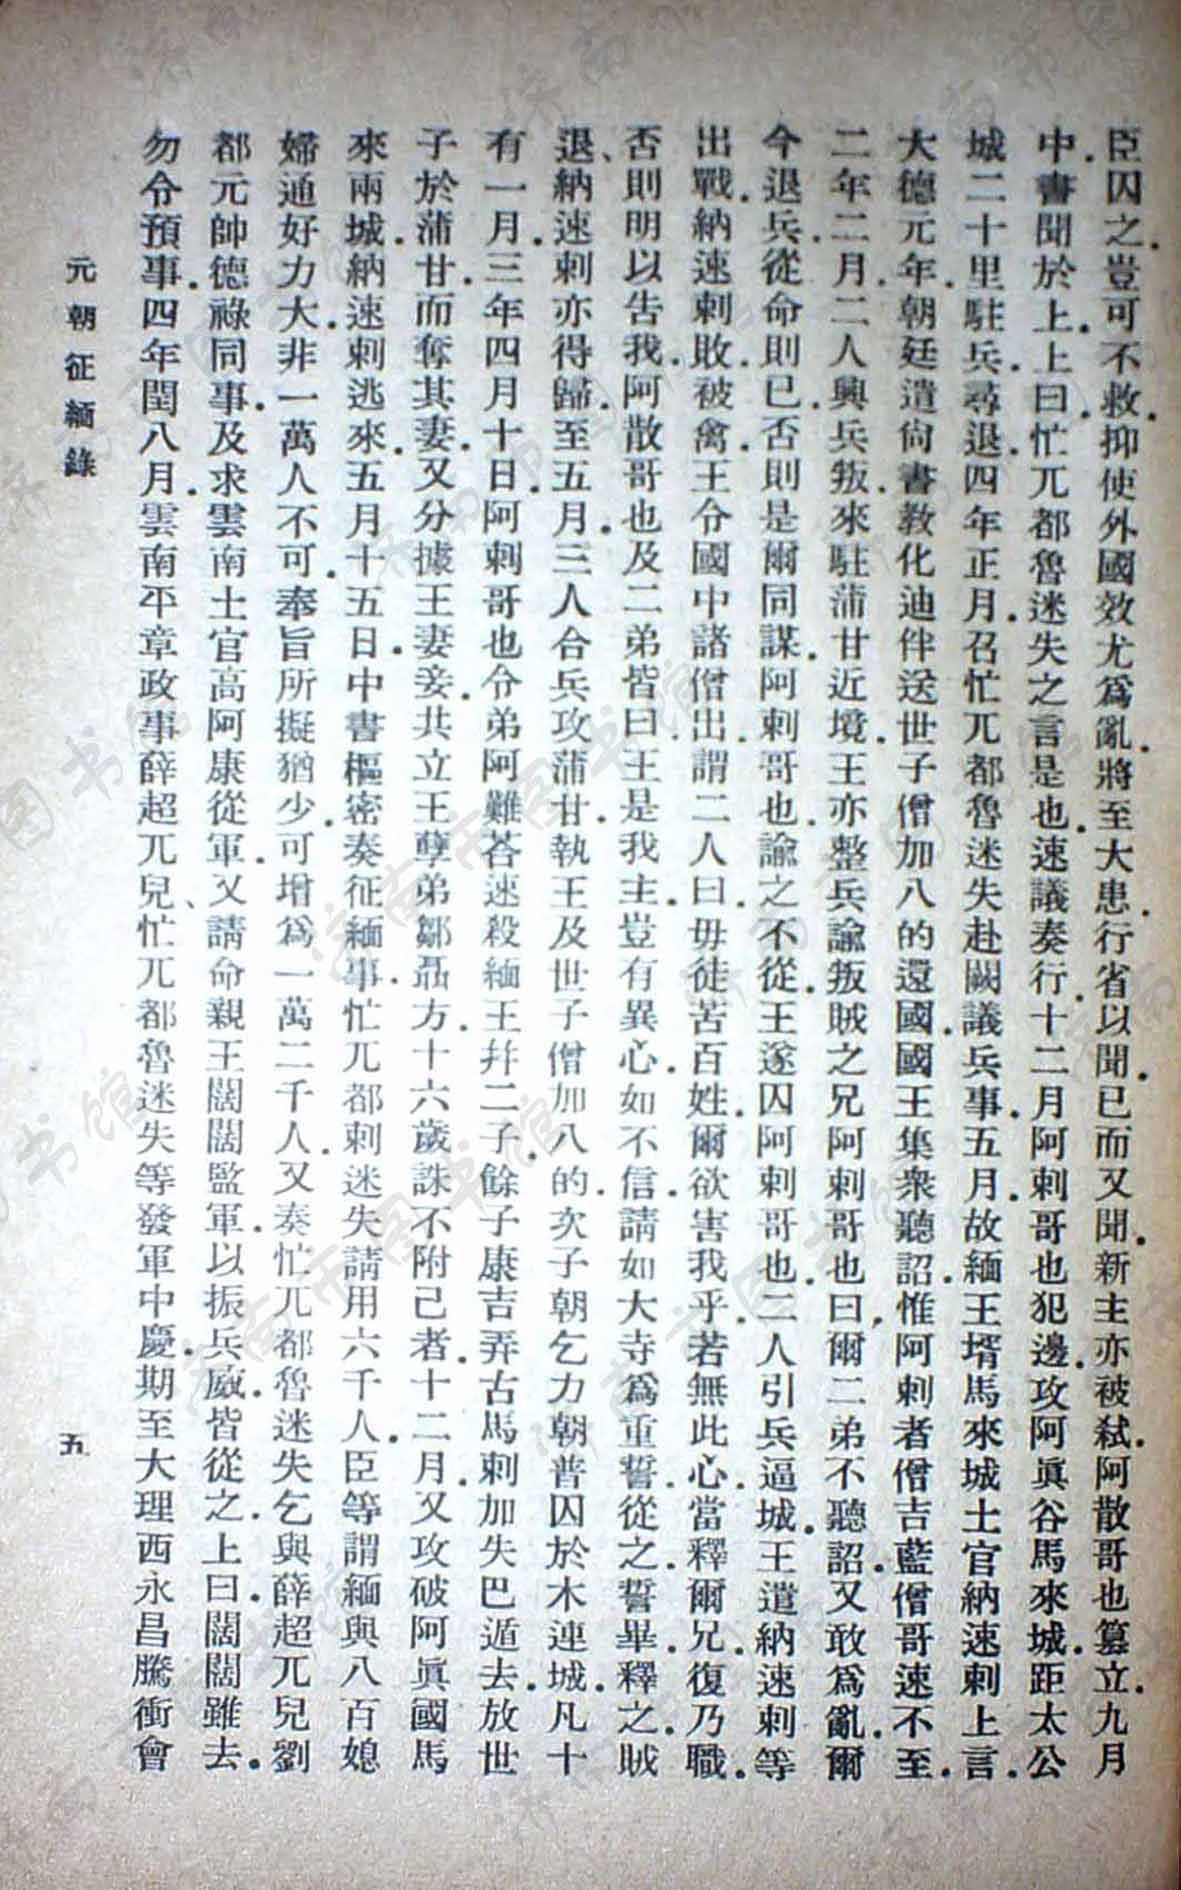 臣囚之。豈可不救。抑使外國效尤爲亂。將至大患。行省以聞。已而又聞。新主亦被弒。阿散哥也篡立。九月
中。書聞於上。上曰。忙兀都魯迷失之言是也。速議奏行。十二月。阿剌哥也犯邊。攻阿眞谷馬來城。距太公
城二十里駐兵。尋退。四年正月。召忙兀都魯迷失赴闕。議兵事。五月。故緬王壻馬來城土官納速剌上言。
大德元年。朝廷遣尙書教化迪伴送世子僧加八的還國。國王集衆聽詔。惟阿剌者僧吉藍僧哥速不至。
二年二月。二人興兵叛。來駐蒲甘近境。王亦整兵諭叛賊之兄阿剌哥也。曰。爾二弟不聽詔。又敢爲亂。爾
今退兵。從命則已。否則是爾同謀。阿剌哥也。諭之不從。王遂囚阿剌哥也。二人引兵逼城。王遣納速剌等
出戰。納速剌敗。被禽。王令國中諸僧出。謂二人曰。毋徒苦百姓。爾欲害我乎。若無此心。當釋爾兄。復乃職。
否則明以告我。阿散哥也及二弟皆曰。王是我主。豈有異心。如不信。請如大寺爲重誓。從之。誓畢。釋之。賊
退、納速剌亦得歸。至五月。三人合兵攻蒲甘。執王及世子僧加八的。次子朝乞力朝普囚於木連城。凡十
有一月。三年四月十日。阿剌哥也令弟阿難荅速殺緬王幷二子。餘子康吉弄古馬剌加失巴遁去。放世
子於蒲甘。而奪其妻。又分據王妻妾。共立王孽弟鄒聶。方十六歲。誅不附己者。十二月。又攻破阿眞國馬
來兩城。納速剌逃來。五月十五日。中書樞密奏征緬事。忙兀都剌迷失請用六千人。臣等謂緬與八百媳
婦通好。力大。非一萬人不可。奉旨所擬猶少。可增爲一萬二千人。又奏忙兀都魯迷失乞與薛超兀兒劉
都元帥德祿同事。及求雲南土官高阿康從軍。又請命親王闊闊監軍。以振兵威。皆從之。上曰。闊闊雖去。
勿令預事。四年閏八月。雲南平章政事薛超兀兒、忙兀都魯迷失等發軍中慶。期至大理西永昌騰衝會
元朝征緬錄
五